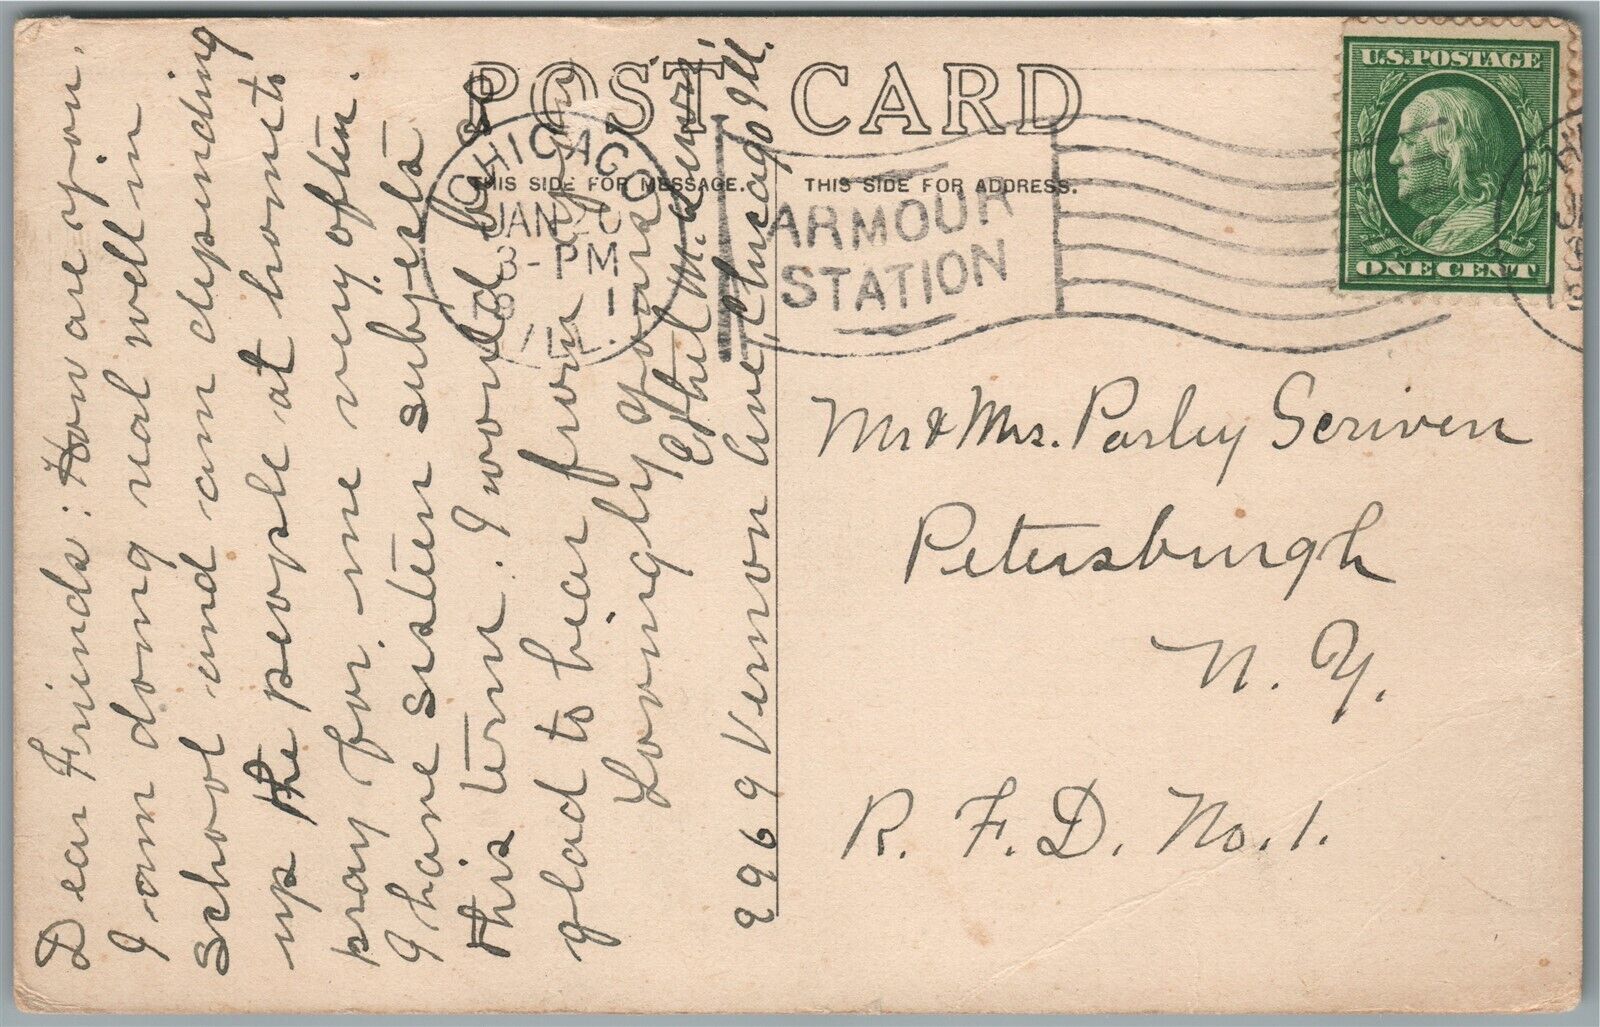 POST CARD
THIS SIDE FOR MESSAGE.
THIS SIDE FOR ADDRESS.
U.S. POSTAGE
ONE CENT
CHICAGO
JAN 20
3-PM
ILL.
ARMOUR
STATION
Dear Friends: How are you.
I am doing real well in
school and am depending
up the people at home to
pray for me very often.
I have sixteen subjects
this term. I would be so
glad to hear from you
Lovingly Yours
Ethel M.
2969 Vernon Ave, Chicago Ill.
Mr & Mrs. Parley Scriven
Petersburgh
N. Y.
R. F. D. No. 1.